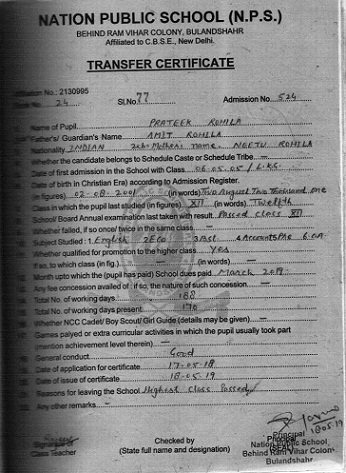 NATION PUBLIC SCHOOL (N.P.S.)
BEHIND RAM VIHAR COLONY, BULANDSHAHR
Affiliated to C.B.S.E., New Delhi.
TRANSFER CERTIFICATE
Affiliation No.: 2130995
Book No. 24 Sl.No. 77 Admission No. 524
Name of Pupil. PRATEEK ROHILA
Father's/ Guardian's Name AMIT ROHILA
Nationality INDIAN Mother's name. NEETU ROHILA
Whether the candidate belongs to Schedule Caste or Schedule Tribe. —
Date of first admission in the School with Class 06.05.05 / L.K.G.
Date of birth in Christian Era) according to Admission Register.
(in figures) 02-08-2001 (in words) Two August Two Thousand one
Class in which the pupil last studied (in figures) XII (in words) Twelfth
School/ Board Annual examination last taken with result. Passed class XII
Whether failed, if so once/ twice in the same class —
Subject Studied : 1 English 2 ECO 3 B.St 4 Accounts 5 P.E 6
Whether qualified for promotion to the higher class Yes
If so, to which class (in fig.) — (in words) —
Month upto which the (pupil has paid) School dues paid. March 2019
Any fee concession availed of : if so, the nature of such concession. —
Total No. of working days 188
Total No. of working days present. 170
Whether NCC Cadet/ Boy Scout/ Girl Guide (details may be given) —
Games palyed or extra curricular activities in which the pupil usually took part
(mention achievement level therein) —
General conduct Good
Date of application for certificate 17-05-18
Date of issue of certificate 18-05-19
Reasons for leaving the School Highest Class Passed
Any other remarks. —
18.05.19
Signature Principal
Class Teacher Checked by (SEAL)
(State full name and designation) Nation Public School,
Behind Ram Vihar Colony
Bulandshahr